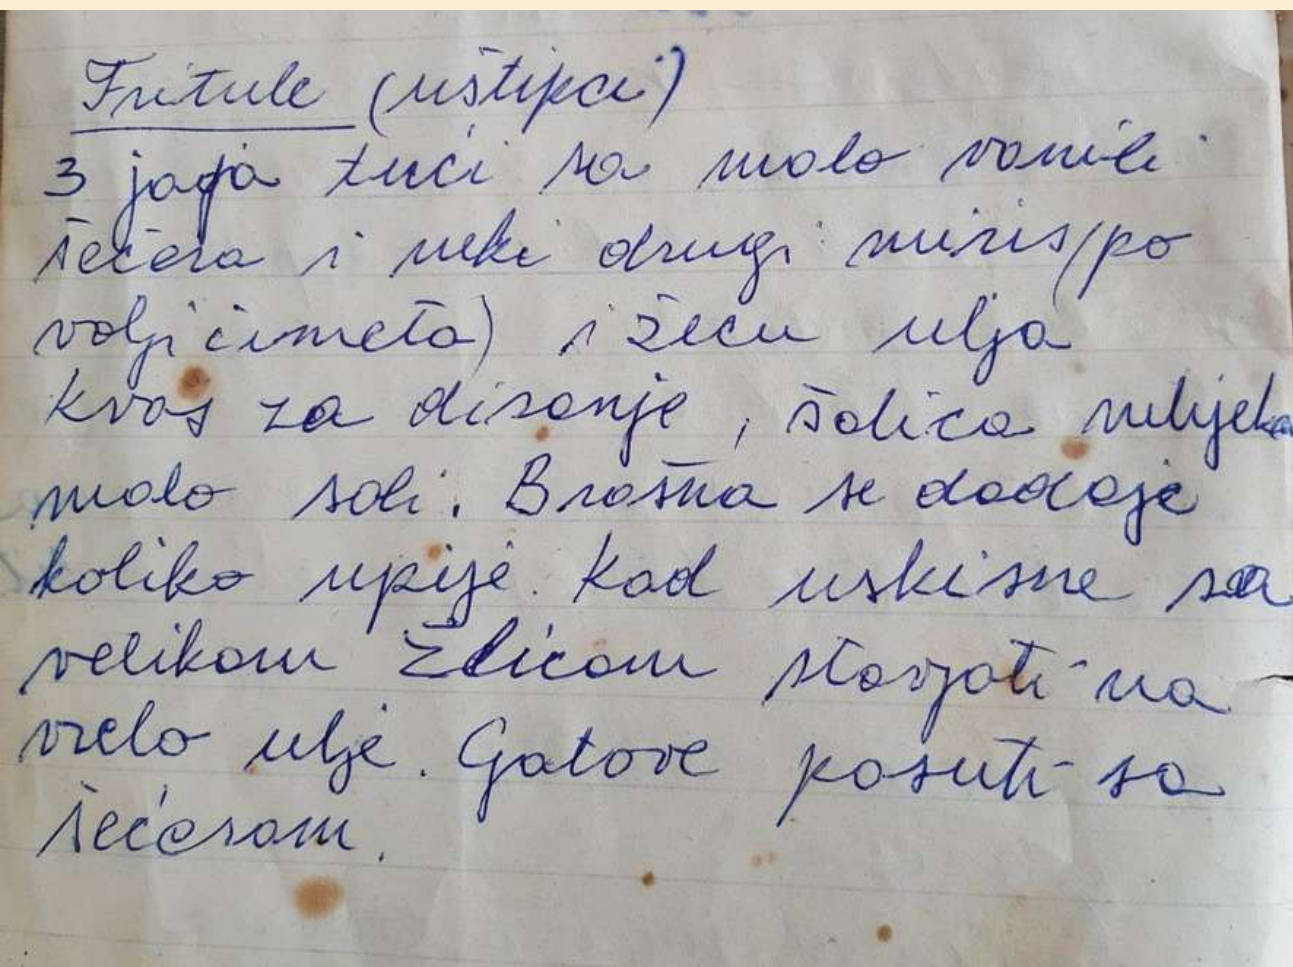 Fritule (uštipci)
3 jaja tući sa malo vanili
šećera i neki drugi miris (po
volji cimeta) i žlicu ulja
kvas za dizanje, šalica mlijeka
malo soli. Brašna se dodaje
koliko upije. Kad uskisne sa
velikom žlicom stavjati na
vrelo ulje. Gotove posuti sa
šećerom.